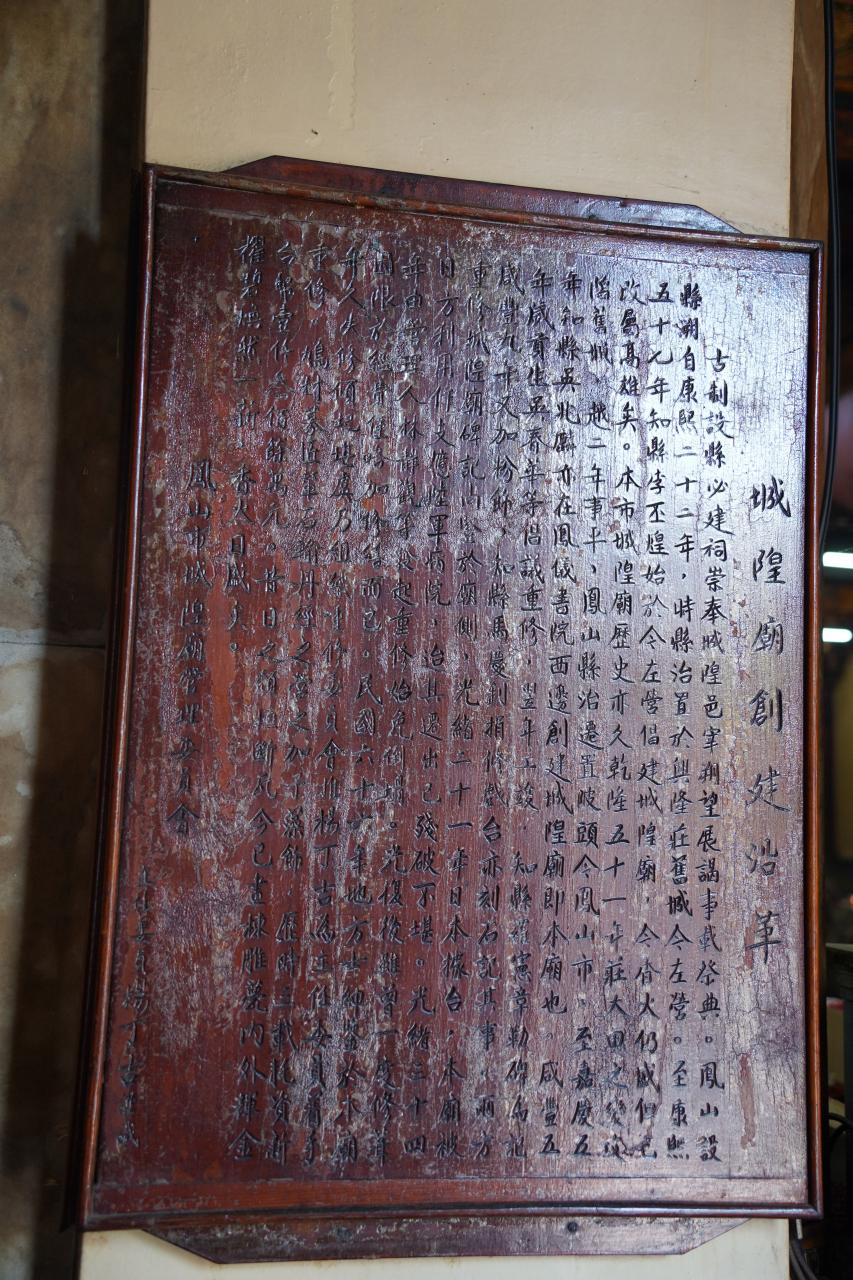 城隍廟創建沿革
古制設縣必建祠崇奉城隍邑宰朔望展謁事載祭典。鳳山設
縣溯自康熙二十二年，時縣治置於興隆莊舊城今左營。至康熙
五十七年知縣李丕煜始於今左營倡建城隍廟，今香火仍盛但已
改屬高雄矣。本市城隍廟歷史亦久乾隆五十一年莊大田之變
舊城。越二年事平、鳳山縣治遷置陂頭今鳳山市。至嘉慶五
年知縣吳兆麟亦在鳳儀書院西邊創建城隍廟即本廟也。咸豐五
年歲貢生吳春年等倡議重修，翌年工竣，知縣羅憲章勒碑為記
咸豐九年又加粉飾、知縣馬慶釗捐修戲台亦刻石記其事，兩方
重修城隍廟碑記尚竪於廟側，光緒二十一年日本據台，本廟被
日方利用作支應陸軍病院，迨其遷出已殘破不堪。光緒三十四
年由管理人林靜觀等發起重修始免倒塌。光復後雖曾一度修葺
因限於經費僅略加修繕而已。民國六十六年地方士紳鑒於本廟
年久失修傾圮堪虞乃組織重修委員會推楊丁吉為主任委員着手
重修，鳩材募匠革石榆丹經之營之加予藻飾，歷時三載耗資新
台幣壹仟叁佰餘萬元。昔日之頹垣斷瓦今已畫棟雕甍內外輝金
耀碧煥然一新，香火日盛矣。
鳳山市城隍廟管理委員會
主任委員楊丁吉